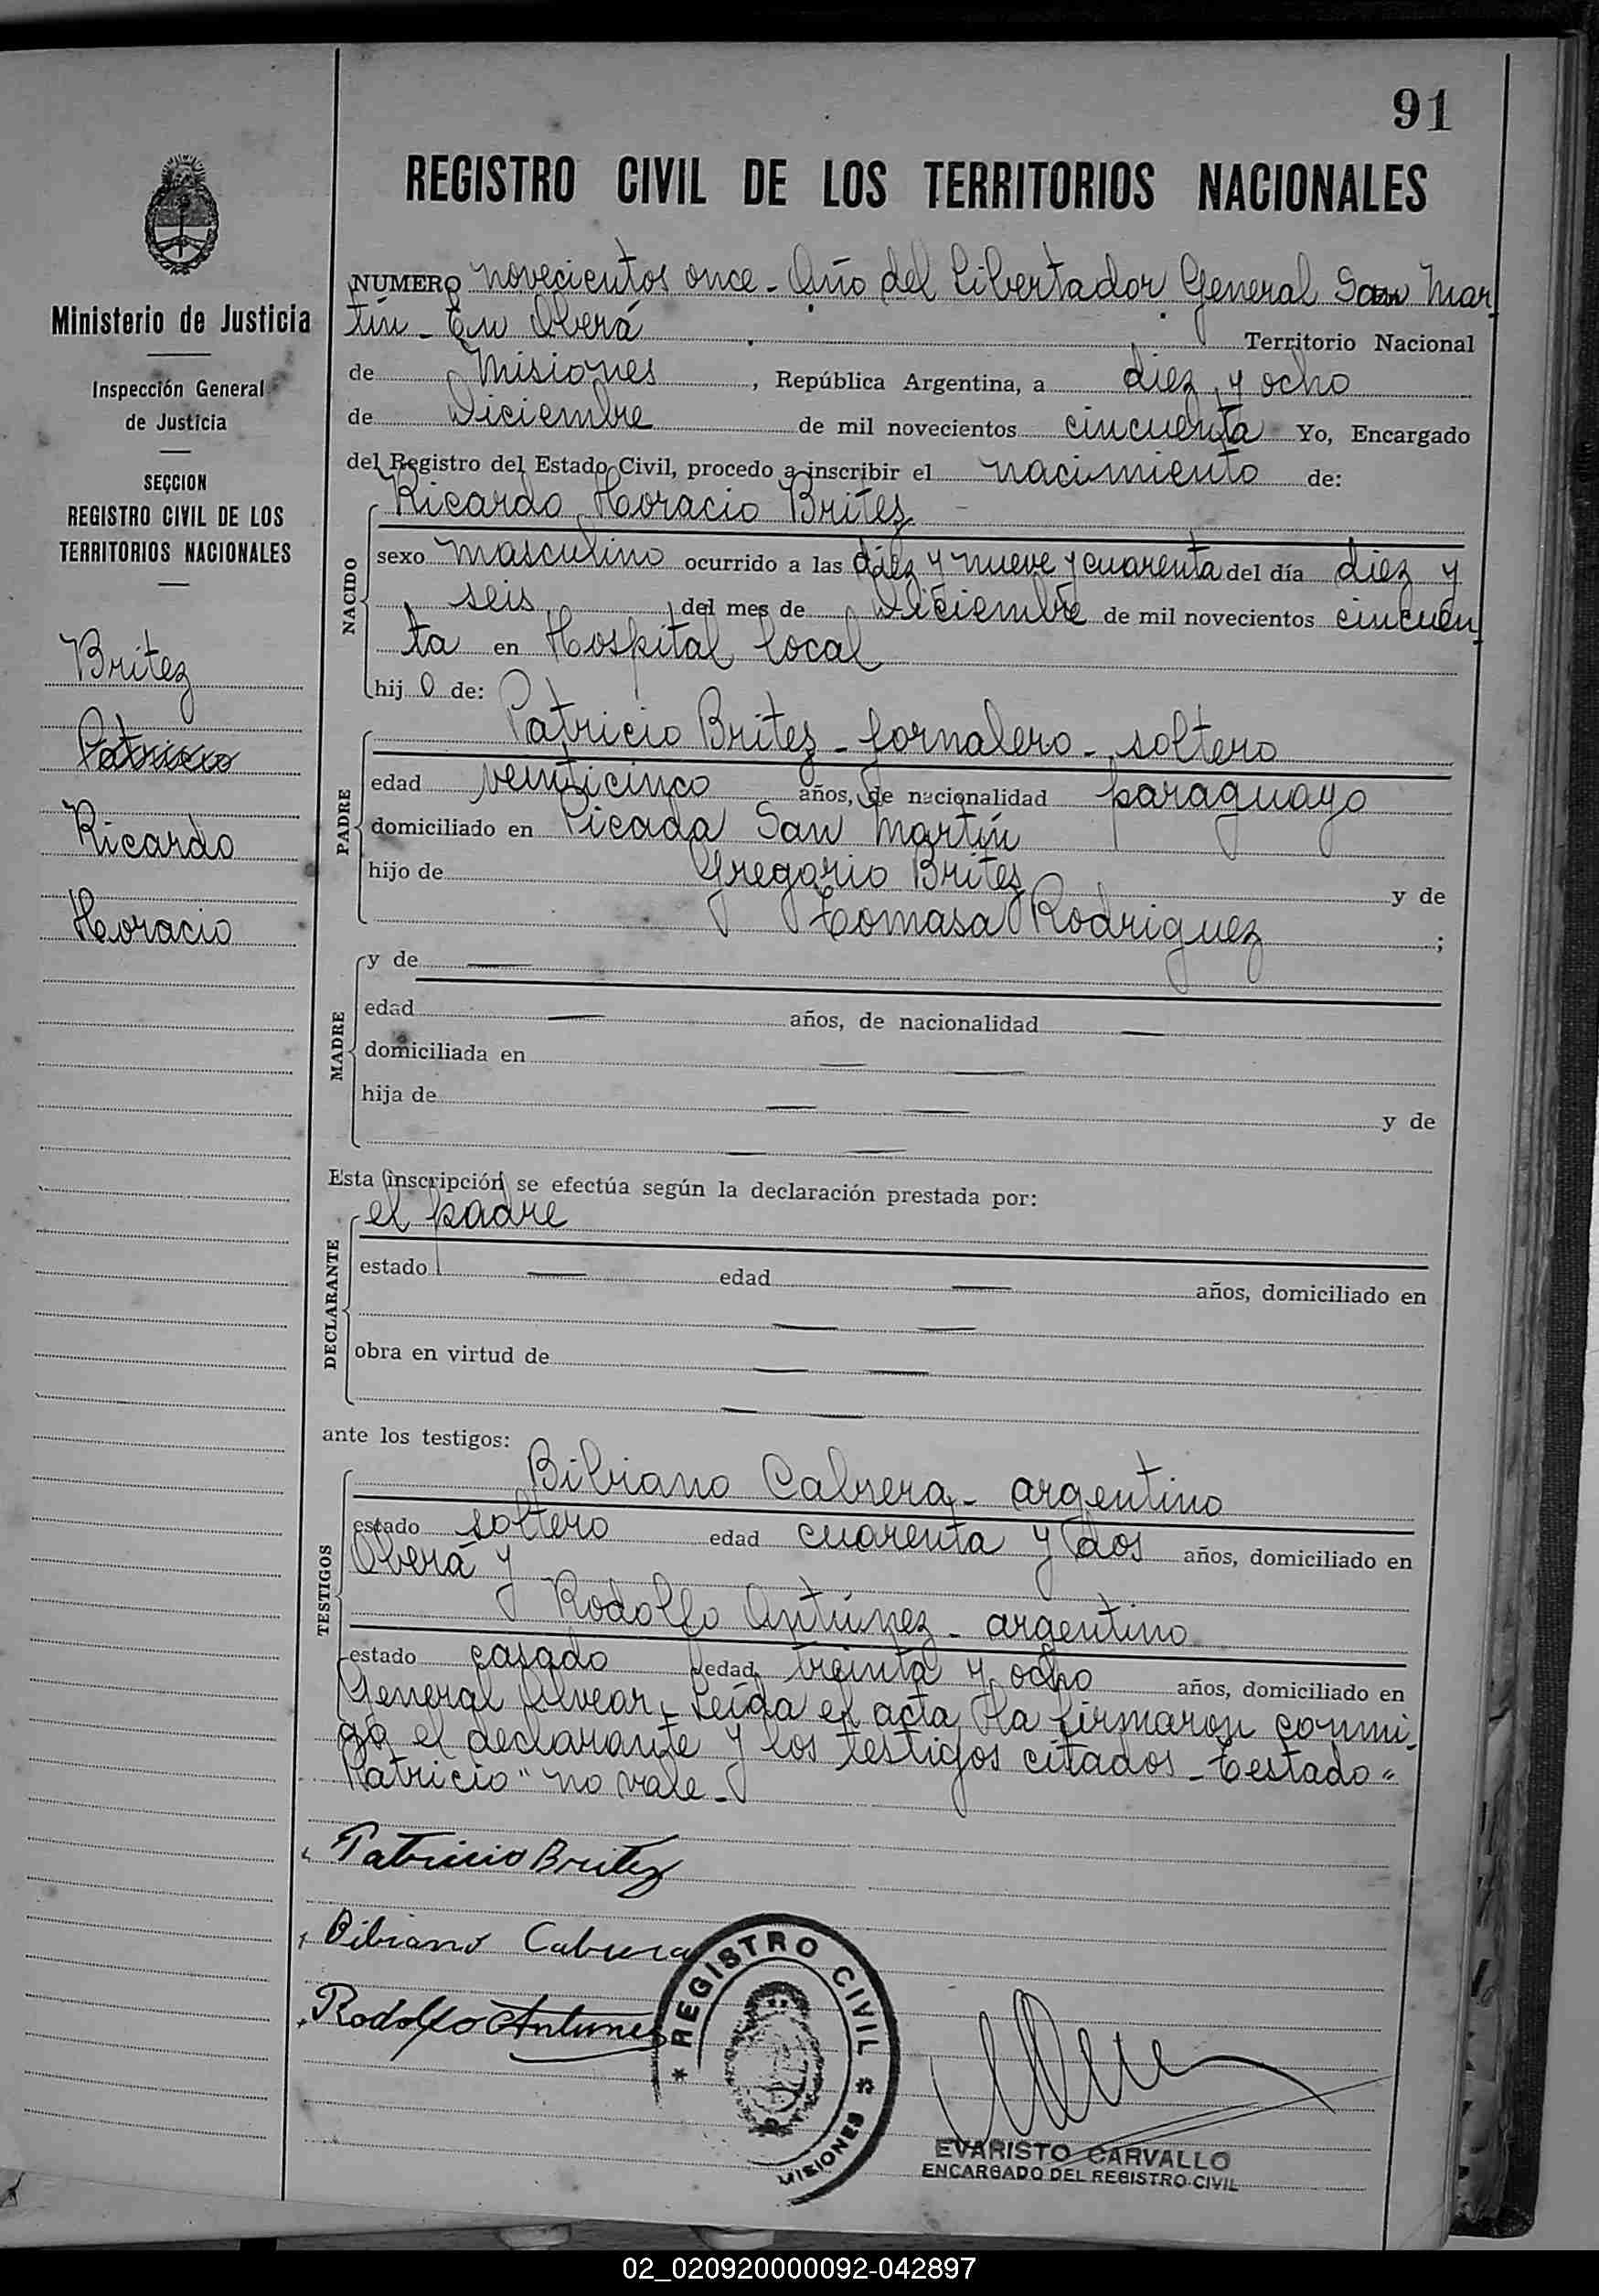 91
REGISTRO CIVIL DE LOS TERRITORIOS NACIONALES
Ministerio de Justicia
Inspección General
de Justicia
SECCION
REGISTRO CIVIL DE LOS
TERRITORIOS NACIONALES
Britez
Patricio
Ricardo
Horacio
NUMERO novecientos once - Año del Libertador General San Mar
tín - En Oberá Territorio Nacional
de Misiones, República Argentina, a diez y ocho
de Diciembre de mil novecientos cincuenta Yo, Encargado
del Registro del Estado Civil, procedo a inscribir el nacimiento de:
Ricardo Horacio Britez
NACIDO
sexo masculino ocurrido a las diez y nueve y cuarenta del día diez y
seis del mes de Diciembre de mil novecientos cincuen
ta en Hospital local
hij o de:
Patricio Britez - Jornalero - soltero
PADRE
edad veinticinco años, de nacionalidad paraguayo
domiciliado en Picada San Martín
hijo de Gregorio Britez y de
Tomasa Rodriguez ;
MADRE
y de —
edad — años, de nacionalidad —
domiciliada en — —
hija de — — y de
— —
Esta inscripción se efectúa según la declaración prestada por:
el padre
DECLARANTE
estado — edad — años, domiciliado en
— —
obra en virtud de — —
— —
ante los testigos:
Bibiano Cabrera - argentino
TESTIGOS
estado soltero edad cuarenta y dos años, domiciliado en
Oberá y
Rodolfo Antúnez - argentino
estado casado edad treinta y ocho años, domiciliado en
General Alvear - Leída el acta, la firmaron conmi
go el declarante y los testigos citados - Testado "
Patricio" no vale -
Patricio Britez
Bibiano Cabrera
Rodolfo Antunes
* REGISTRO CIVIL *
MISIONES
EVARISTO CARVALLO
ENCARGADO DEL REGISTRO CIVIL
02_020920000092-042897